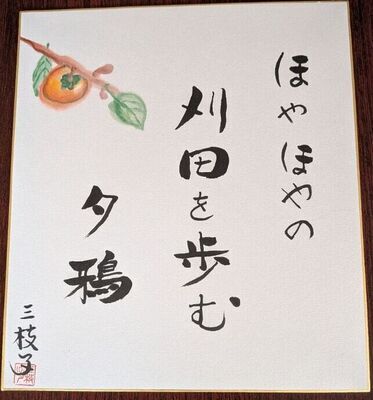 ほやほやの
刈田を歩む
夕鴉
三枝子